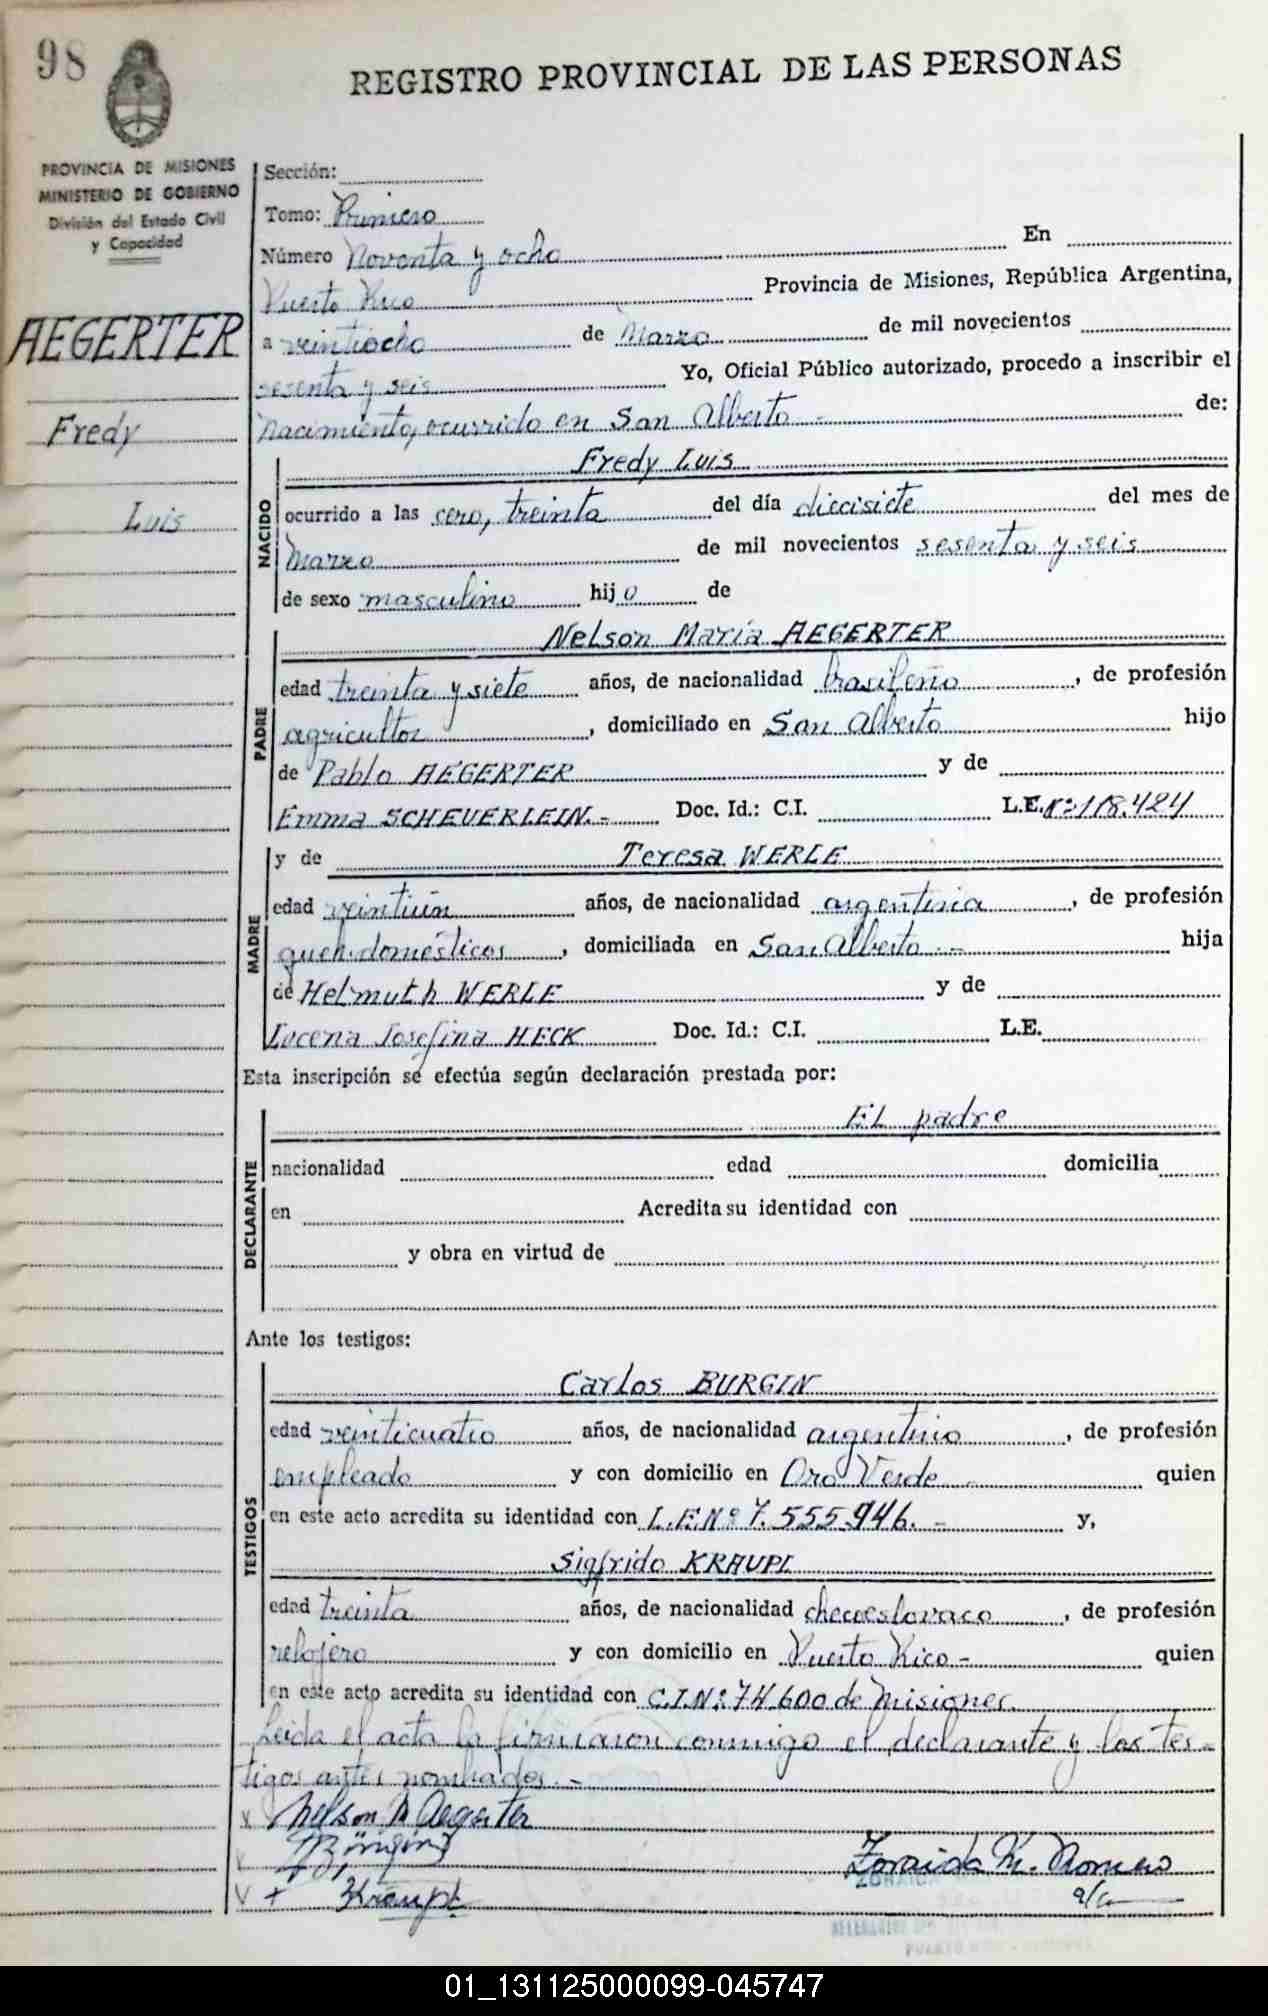 98
REGISTRO PROVINCIAL DE LAS PERSONAS
PROVINCIA DE MISIONES
MINISTERIO DE GOBIERNO
División del Estado Civil
y Capacidad
AEGERTER
Fredy
Luis
Sección:
Tomo: Primero
Número Noventa y ocho En
Puerto Rico Provincia de Misiones, República Argentina,
a veintiocho de Marzo de mil novecientos
sesenta y seis Yo, Oficial Público autorizado, procedo a inscribir el
nacimiento, ocurrido en San Alberto - de:
NACIDO
Fredy Luis
ocurrido a las cero, treinta del día diecisiete del mes de
Marzo de mil novecientos sesenta y seis
de sexo masculino hijo de
PADRE
Nelson María AEGERTER
edad treinta y siete años, de nacionalidad brasileño, de profesión
agricultor, domiciliado en San Alberto hijo
de Pablo AEGERTER y de
Emma SCHEUERLEIN.- Doc. Id.: C.I. L.E. Nº 118.424
MADRE
y de Teresa WERLE
edad veintiún años, de nacionalidad argentina, de profesión
queh. domésticos, domiciliada en San Alberto.- hija
de Helmuth WERLE y de
Lucena Josefina HECK Doc. Id.: C.I. L.E.
Esta inscripción se efectúa según declaración prestada por:
DECLARANTE
El padre
nacionalidad edad domicilia
en Acredita su identidad con
y obra en virtud de
Ante los testigos:
TESTIGOS
Carlos BURGIN
edad veinticuatro años, de nacionalidad argentino, de profesión
empleado y con domicilio en Oro Verde - quien
en este acto acredita su identidad con L.E.Nº 7.555.946.- y,
Sigfrido KRAUPL
edad treinta años, de nacionalidad checoeslovaco, de profesión
relojero y con domicilio en Puerto Rico - quien
en este acto acredita su identidad con C.I.Nº 74.600 de Misiones.
Leida el acta la firmaron conmigo el declarante y los tes-
tigos antes nombrados.-
x Nelson M Aegerter
Zoraida M. Romero
ZORAIDA
a/c
PUERTO RICO - MISIONES
01_131125000099-045747